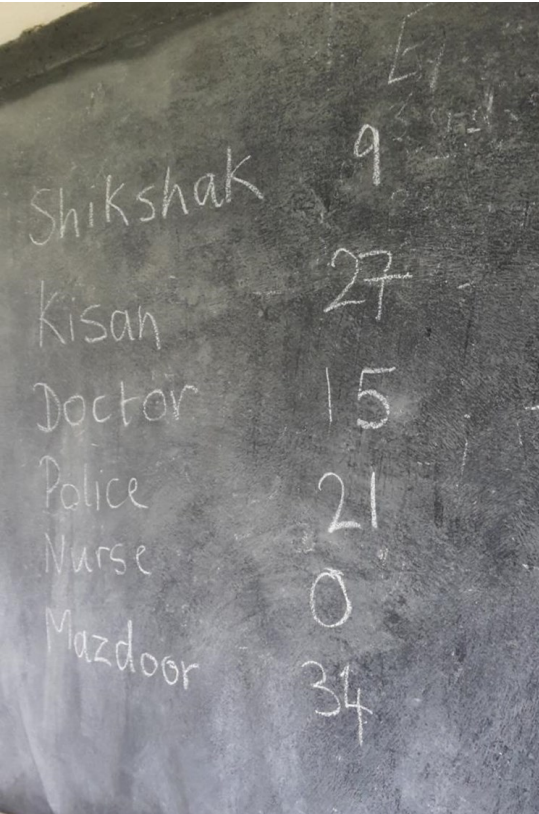 Shikshak 9
Kisan 27
Doctor 15
Police 21
Nurse 0
Mazdoor 34